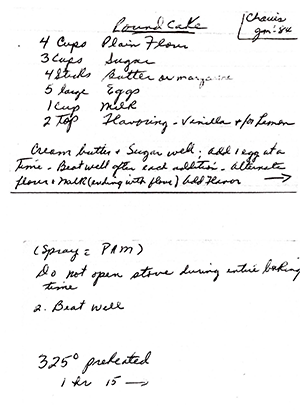 Pound Cake
Chavis
gm-84
4 Cups Plain Flour
3 Cups Sugar
4 Sticks Butter or margarine
5 large Eggs
1 Cup Milk
2 Tsp Flavoring - Vanilla +/or Lemon
Cream butter + Sugar well; add 1 egg at a
time - Beat well after each addition - alternate
flour + milk (ending with flour) Add Flavor →
(Spray = PAM)
Do not open stove during entire baking
time
2. Beat well
325° preheated
1 hr 15 →